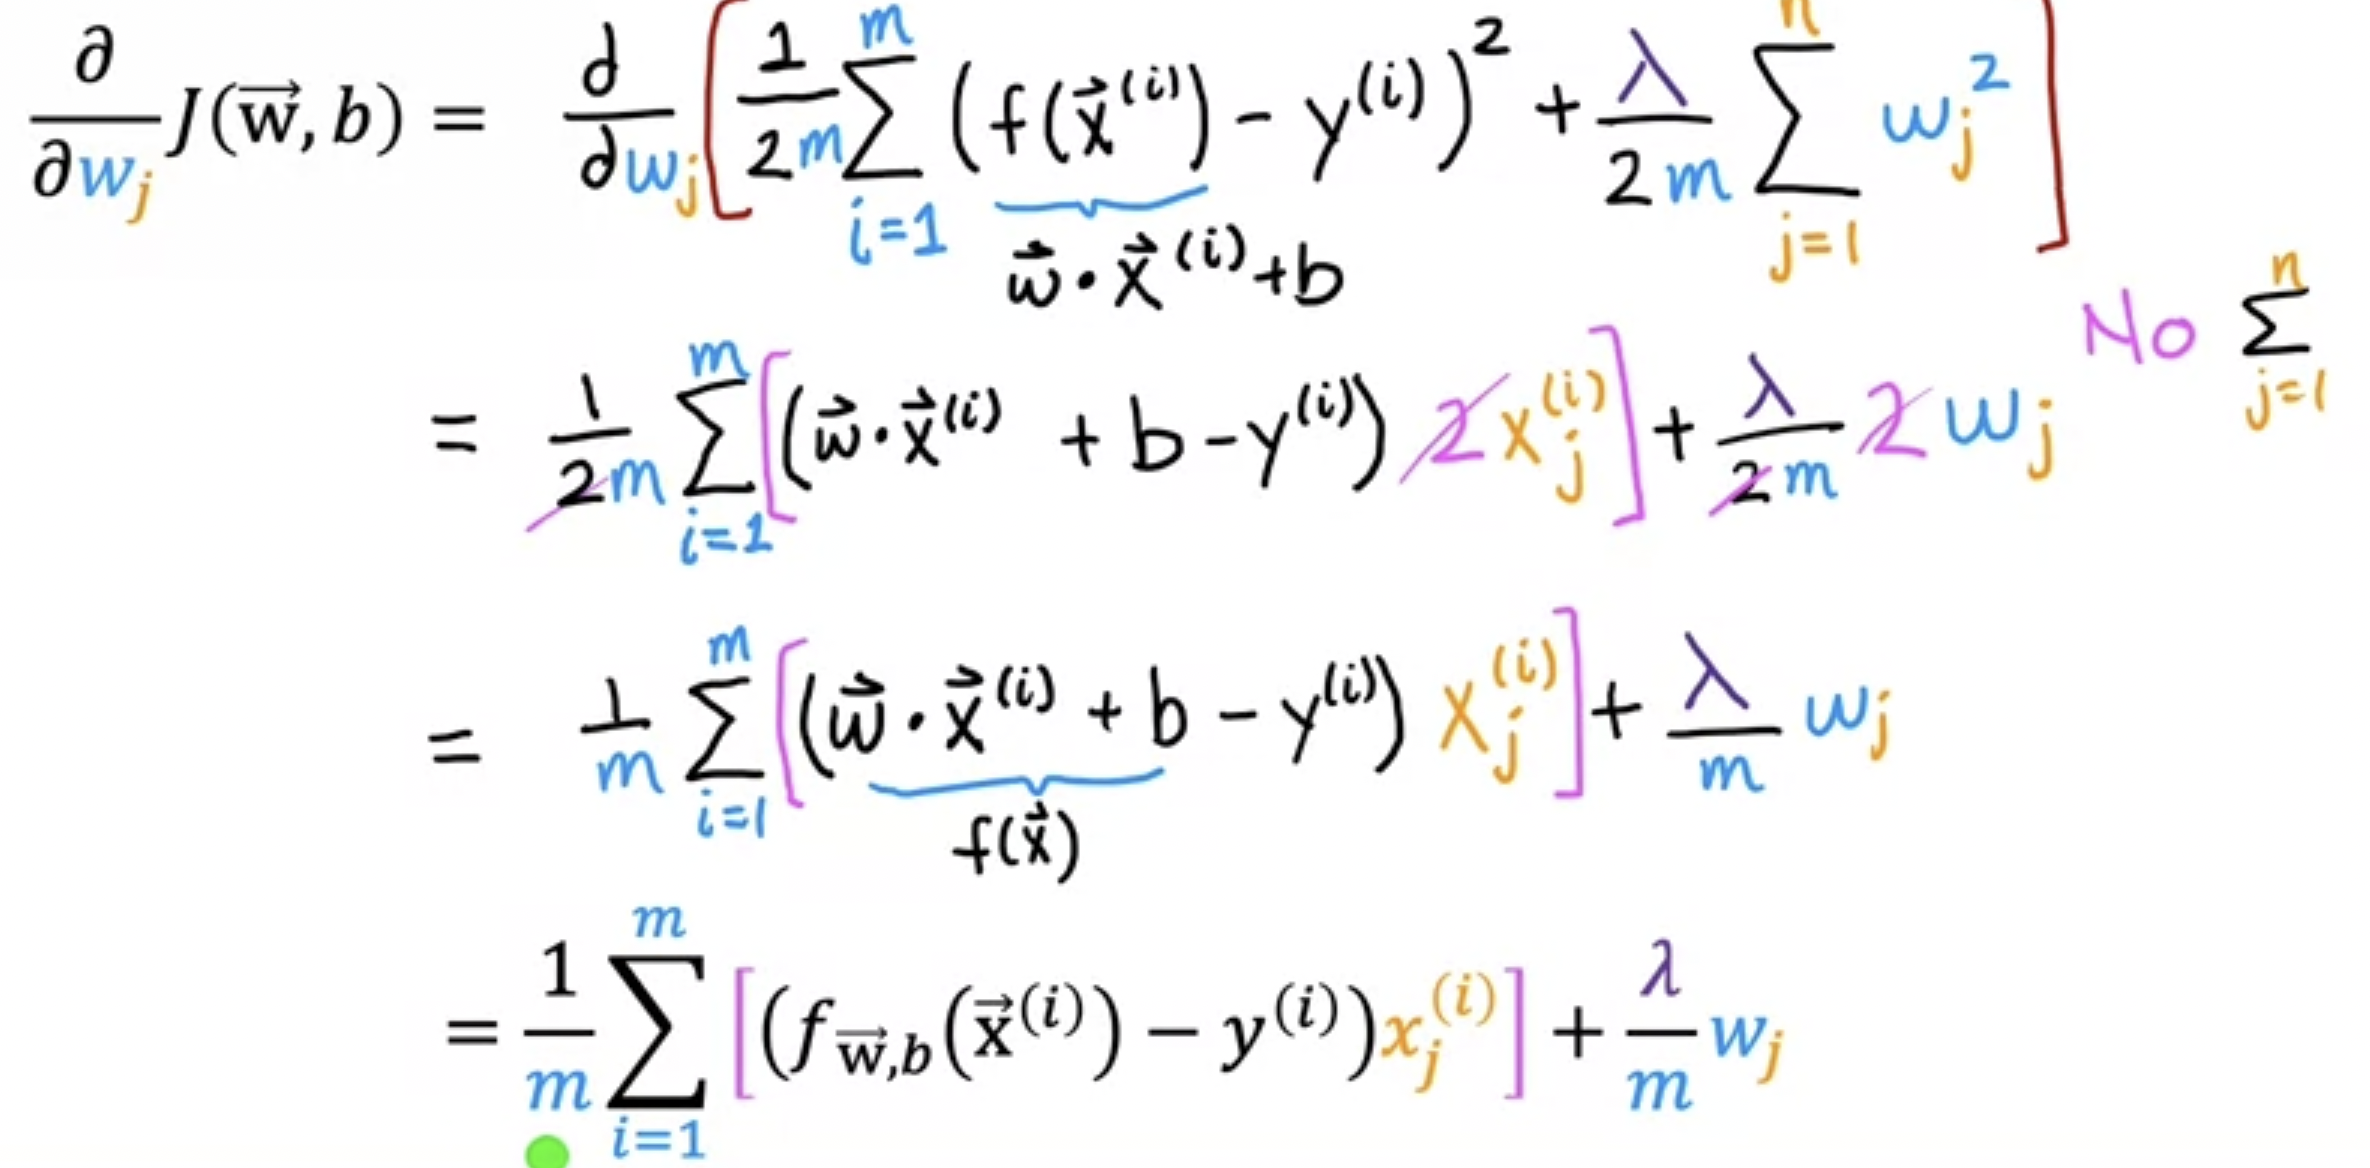 ∂/∂w_j J(w⃗, b) = ∂/∂w_j [ 1/2m ∑_{i=1}^{m} (f(x⃗^(i)) - y^(i))^2 + λ/2m ∑_{j=1}^{n} w_j^2 ]
w⃗ · x⃗^(i) + b
= 1/2m ∑_{i=1}^{m} [ (w⃗ · x⃗^(i) + b - y^(i)) 2 x_j^(i) ] + λ/2m 2 w_j No ∑_{j=1}^{n}
= 1/m ∑_{i=1}^{m} [ (w⃗ · x⃗^(i) + b - y^(i)) x_j^(i) ] + λ/m w_j
f(x⃗)
= 1/m ∑_{i=1}^{m} [ (f_{w⃗,b}(x⃗^(i)) − y^(i)) x_j^(i) ] + λ/m w_j